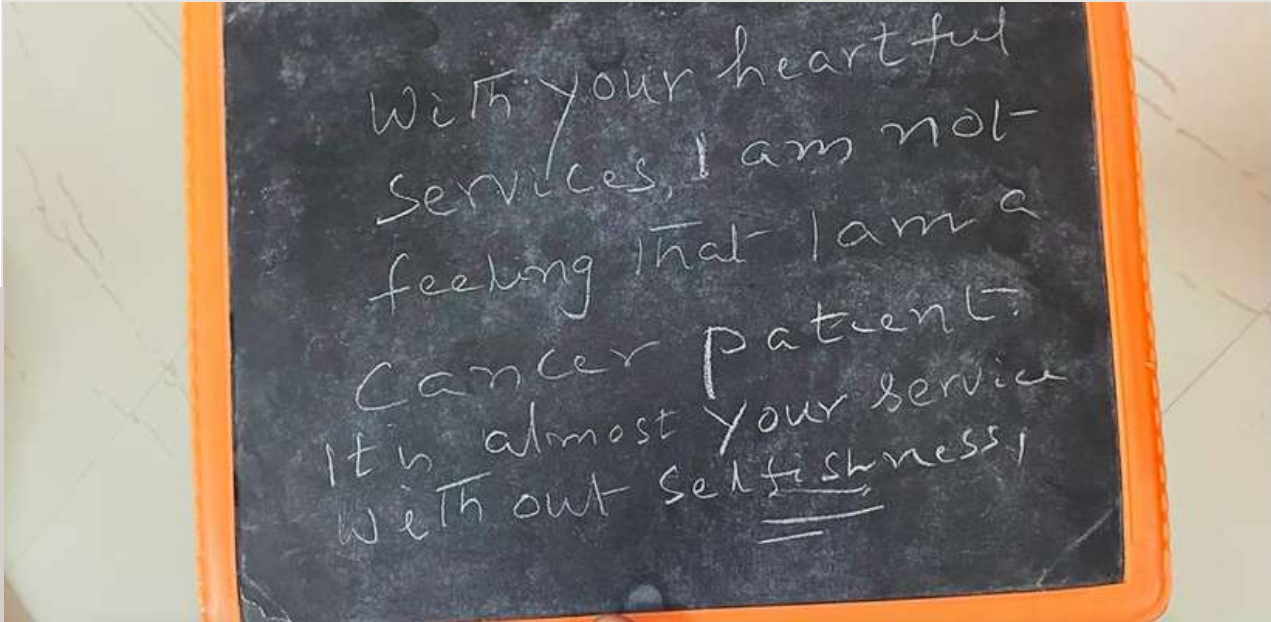 With your heartful
services, I am not
feeling that I am a
Cancer patient.
It is almost your service
with out selfishness,